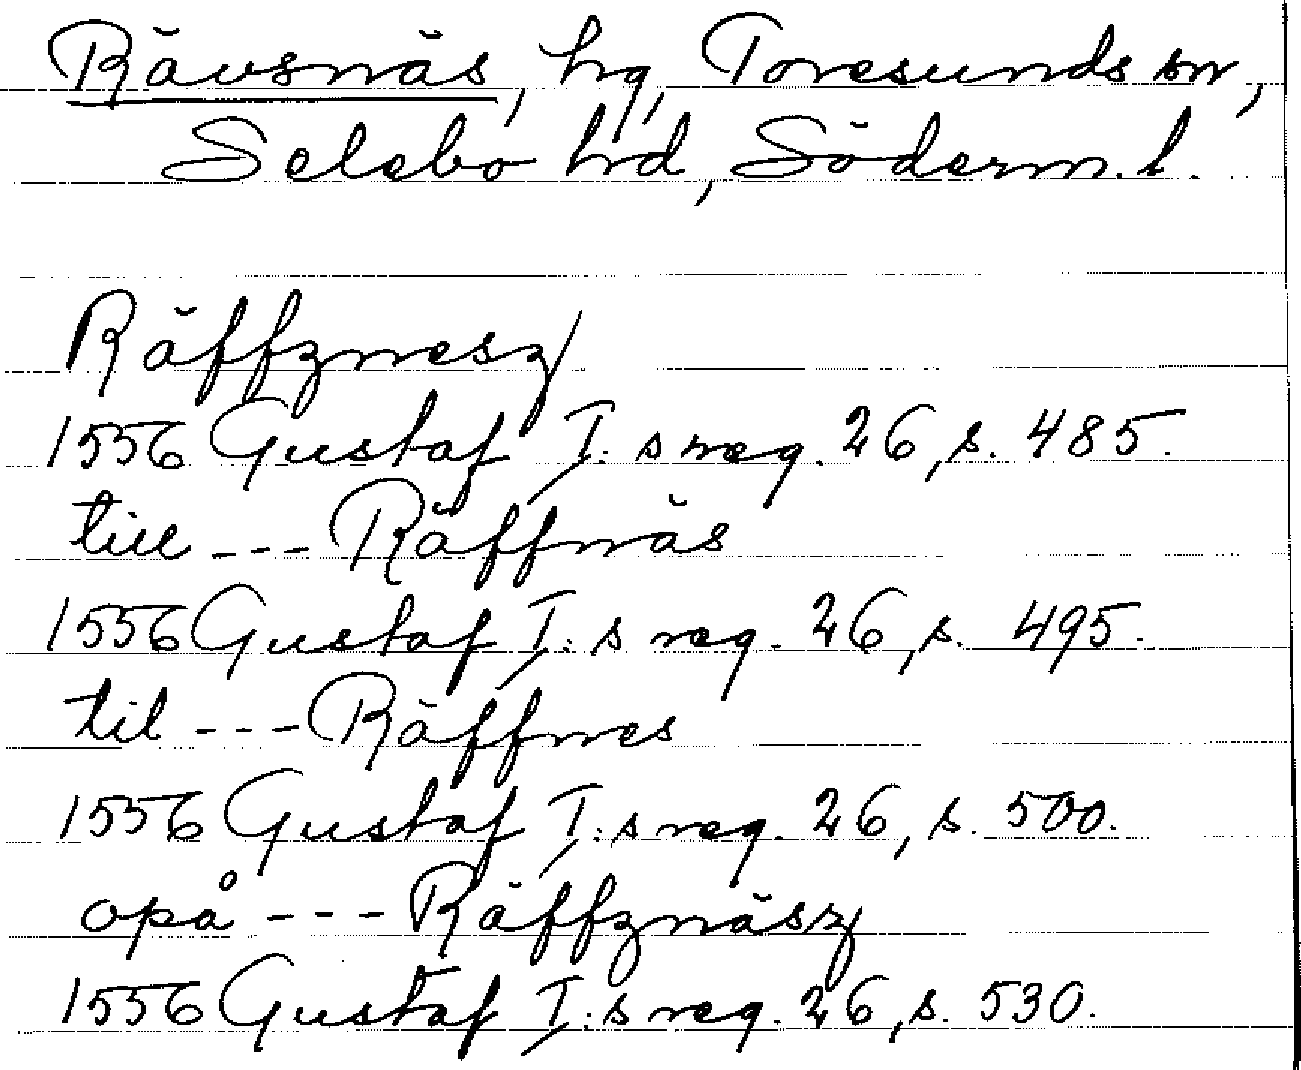 Rävsnäs, hg, Toresunds sn,
Selebo hd, Söderm. l.
Räffznesz
1556 Gustaf I:s reg. 26, s. 485.
till --- Räffnäs
1556 Gustaf I:s reg. 26, s. 495.
til --- Räffnes
1556 Gustaf I:s reg. 26, s. 500.
opå --- Räffznäsz
1556 Gustaf I:s reg. 26, s. 530.